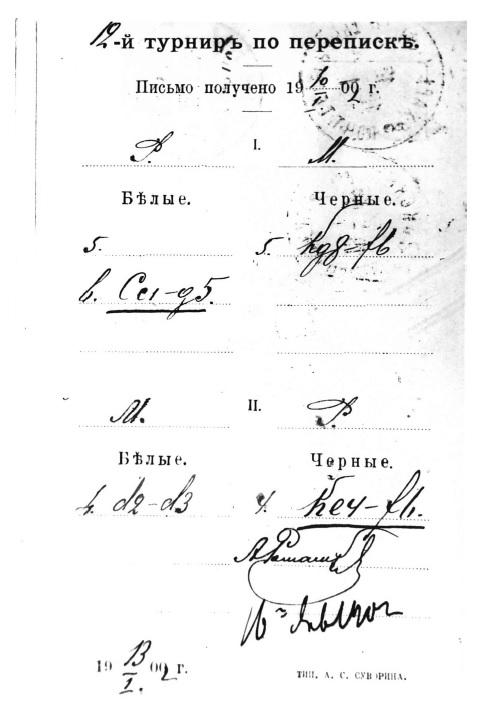 12-й турниръ по перепискѣ.
Письмо получено 19 10/IV 02 г.
Р. I. М.
Бѣлые. Черные.
5. 5. Кg8-f6
6. Сc1-g5.
М. II. Р.
Бѣлые. Черные.
4. d2-d3 4. Кe4-f6.
19 13/I 02 г. ТИП. А. С. СУВОРИНА.